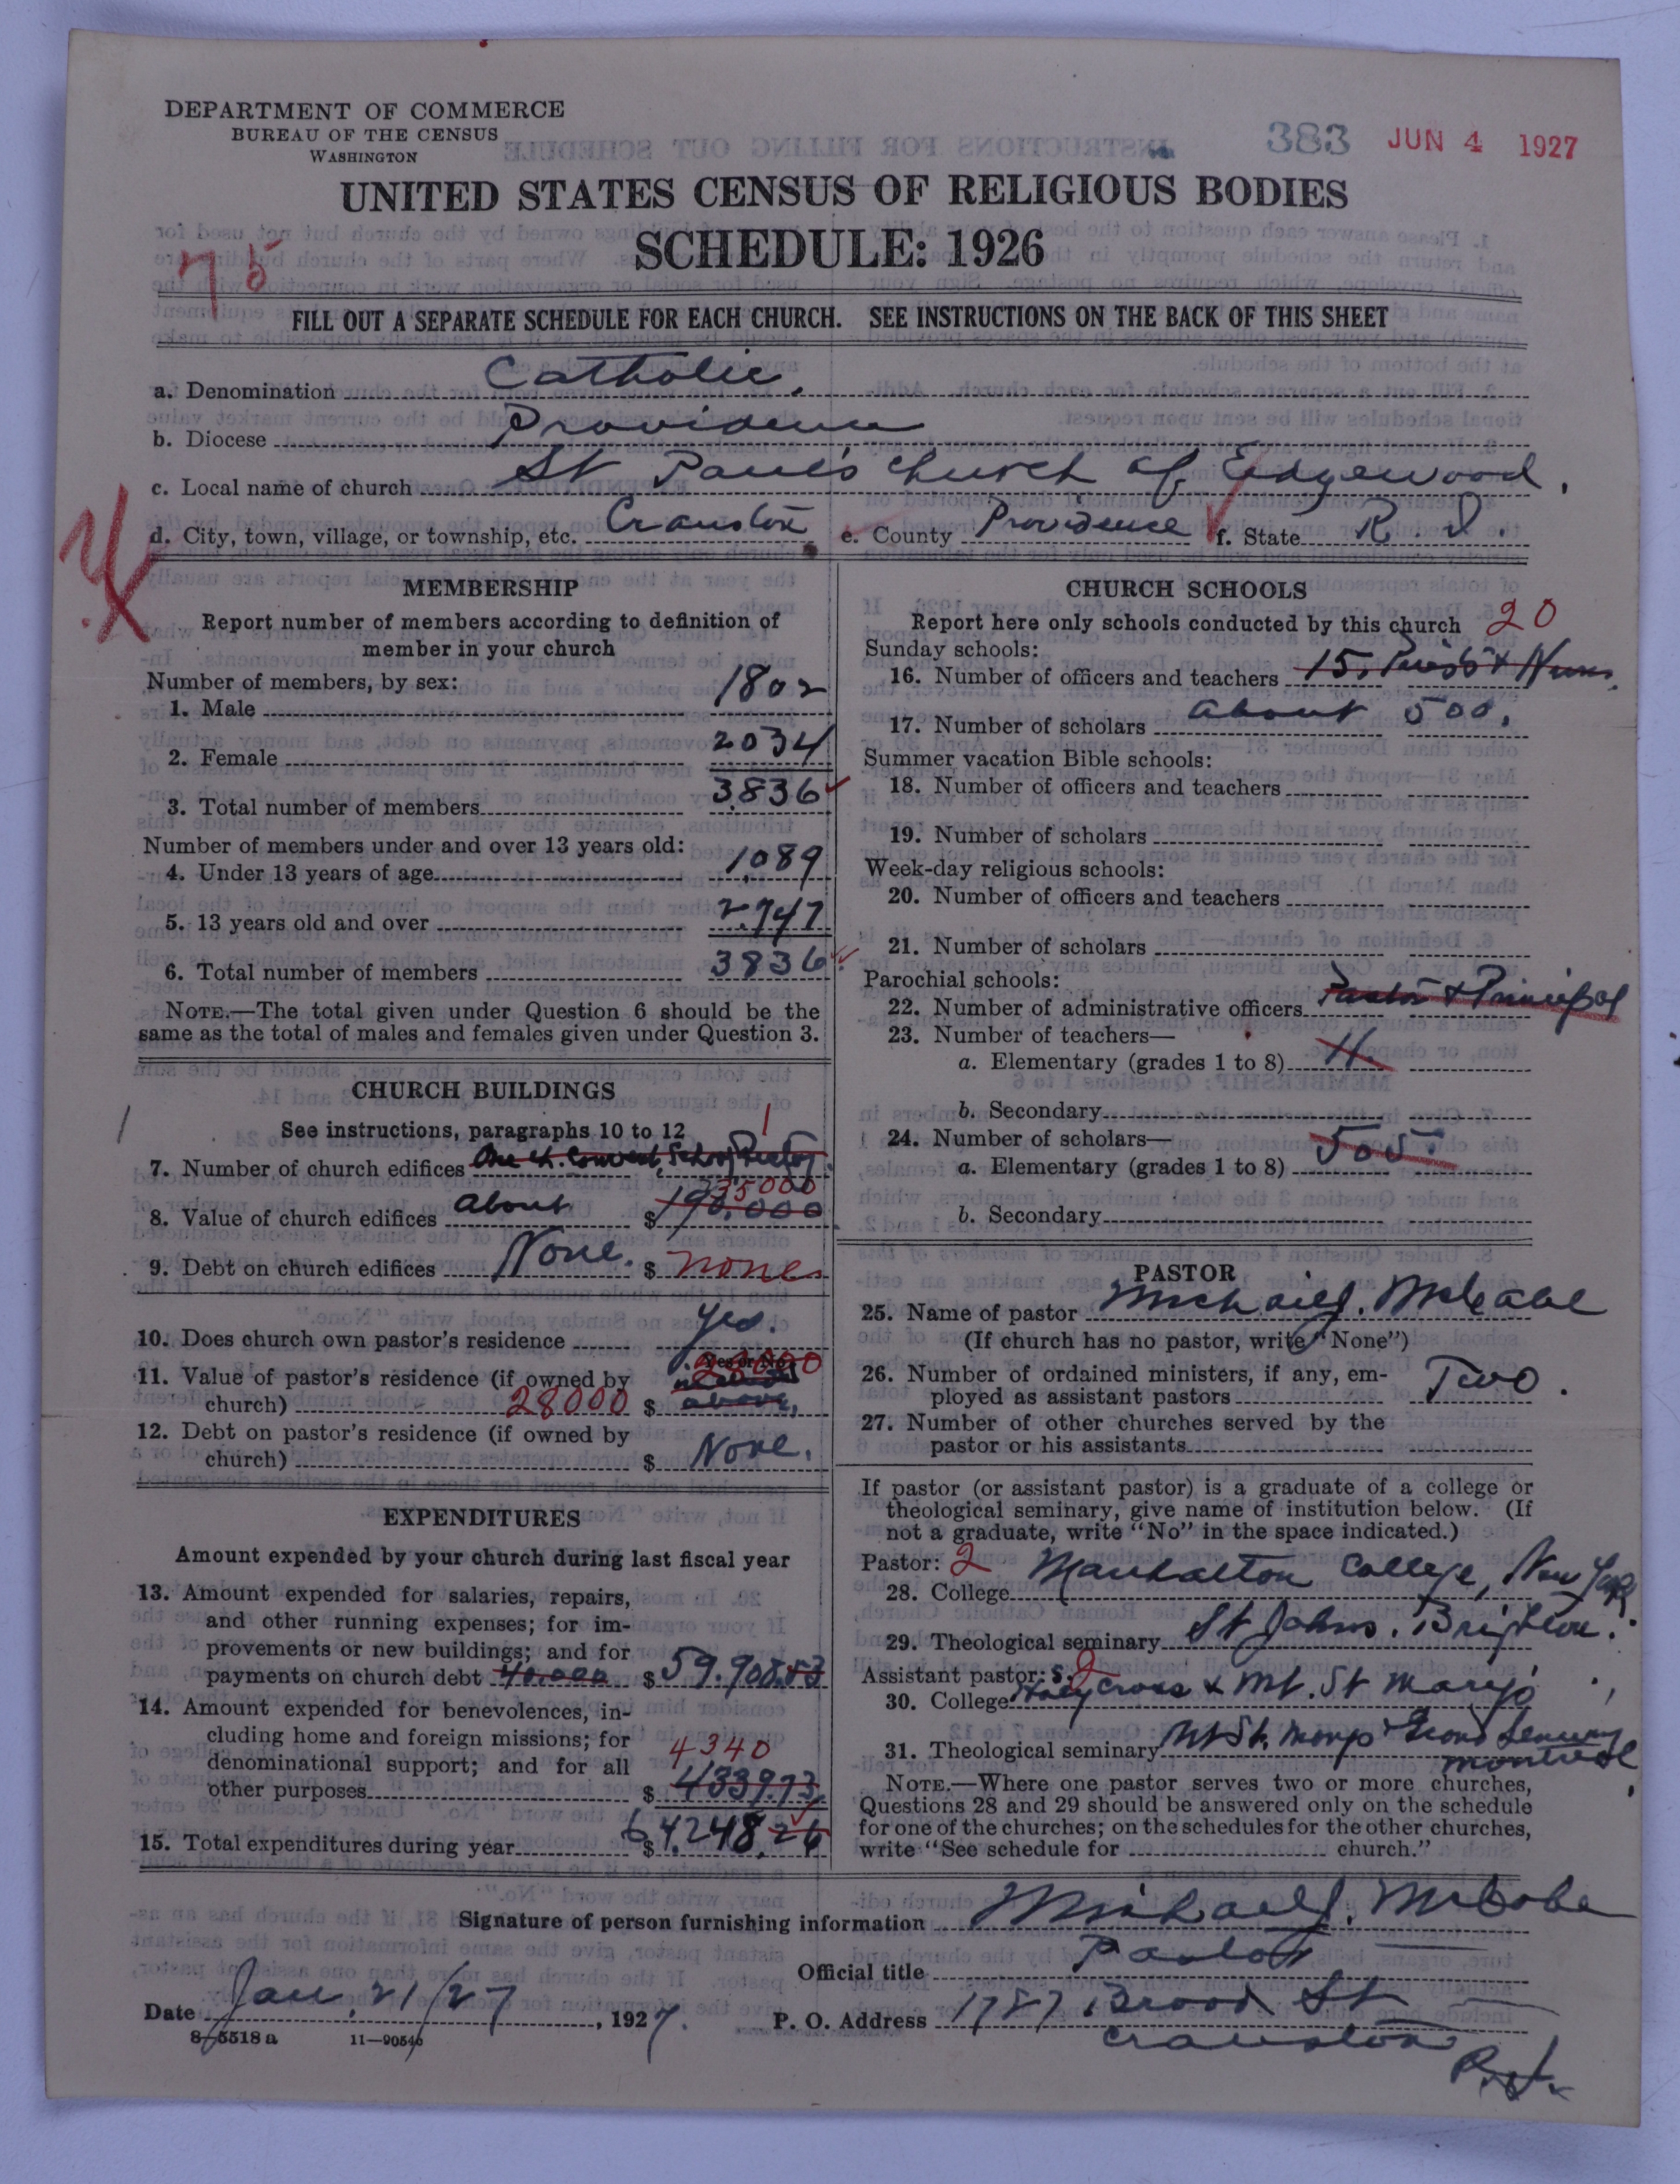 DEPARTMENT OF COMMERCE
BUREAU OF THE CENSUS
WASHINGTON
383 JUN 4 1927
UNITED STATES CENSUS OF RELIGIOUS BODIES
SCHEDULE: 1926
75
FILL OUT A SEPARATE SCHEDULE FOR EACH CHURCH. SEE INSTRUCTIONS ON THE BACK OF THIS SHEET
a. Denomination Catholic.
b. Diocese Providence
c. Local name of church St Paul's Church of Edgewood.
d. City, town, village, or township, etc. Cranston e. County Providence f. State R. I.
MEMBERSHIP
Report number of members according to definition of
member in your church
Number of members, by sex:
1. Male 1802
2. Female 2034
3. Total number of members 3836
Number of members under and over 13 years old:
4. Under 13 years of age 1089
5. 13 years old and over 2747
6. Total number of members 3836
NOTE.—The total given under Question 6 should be the
same as the total of males and females given under Question 3.
CHURCH BUILDINGS
See instructions, paragraphs 10 to 12 1
7. Number of church edifices One Ch. Convent, School Rectory
8. Value of church edifices About $
9. Debt on church edifices None. $ none
10. Does church own pastor's residence Yes.
Yes or No
11. Value of pastor's residence (if owned by 28000
church) 28000 $ above,
12. Debt on pastor's residence (if owned by
church) $ None.
EXPENDITURES
Amount expended by your church during last fiscal year
13. Amount expended for salaries, repairs,
and other running expenses; for im-
provements or new buildings; and for
payments on church debt 40.000 $ 59.908.53
14. Amount expended for benevolences, in-
cluding home and foreign missions; for
denominational support; and for all 4340
other purposes $ 4339.73
15. Total expenditures during year $ 64.248.26
CHURCH SCHOOLS
Report here only schools conducted by this church 20
Sunday schools:
16. Number of officers and teachers 15. Priests & Nuns.
17. Number of scholars About 500.
Summer vacation Bible schools:
18. Number of officers and teachers
19. Number of scholars
Week-day religious schools:
20. Number of officers and teachers
21. Number of scholars
Parochial schools:
22. Number of administrative officers Pastor & Principal
23. Number of teachers—
a. Elementary (grades 1 to 8) 11.
b. Secondary
24. Number of scholars—
a. Elementary (grades 1 to 8) 505.
b. Secondary
PASTOR
25. Name of pastor Michael J. McCabe
(If church has no pastor, write "None")
26. Number of ordained ministers, if any, em-
ployed as assistant pastors Two.
27. Number of other churches served by the
pastor or his assistants
If pastor (or assistant pastor) is a graduate of a college or
theological seminary, give name of institution below. (If
not a graduate, write "No" in the space indicated.)
Pastor: 2
28. College Manhattan College, New York
29. Theological seminary St Johns. Brighton.
Assistant pastor: s. 2
30. College Holy Cross & Mt. St Mary's
31. Theological seminary Mt St. Marys Grand Seminary
Montreal
NOTE.—Where one pastor serves two or more churches,
Questions 28 and 29 should be answered only on the schedule
for one of the churches; on the schedules for the other churches,
write "See schedule for church."
Signature of person furnishing information Michael J. McCabe
Official title Pastor
Date Jan. 21/27, 1927. P. O. Address 1787 Broad St
Cranston
R.I.
8—5518 a 11—90546